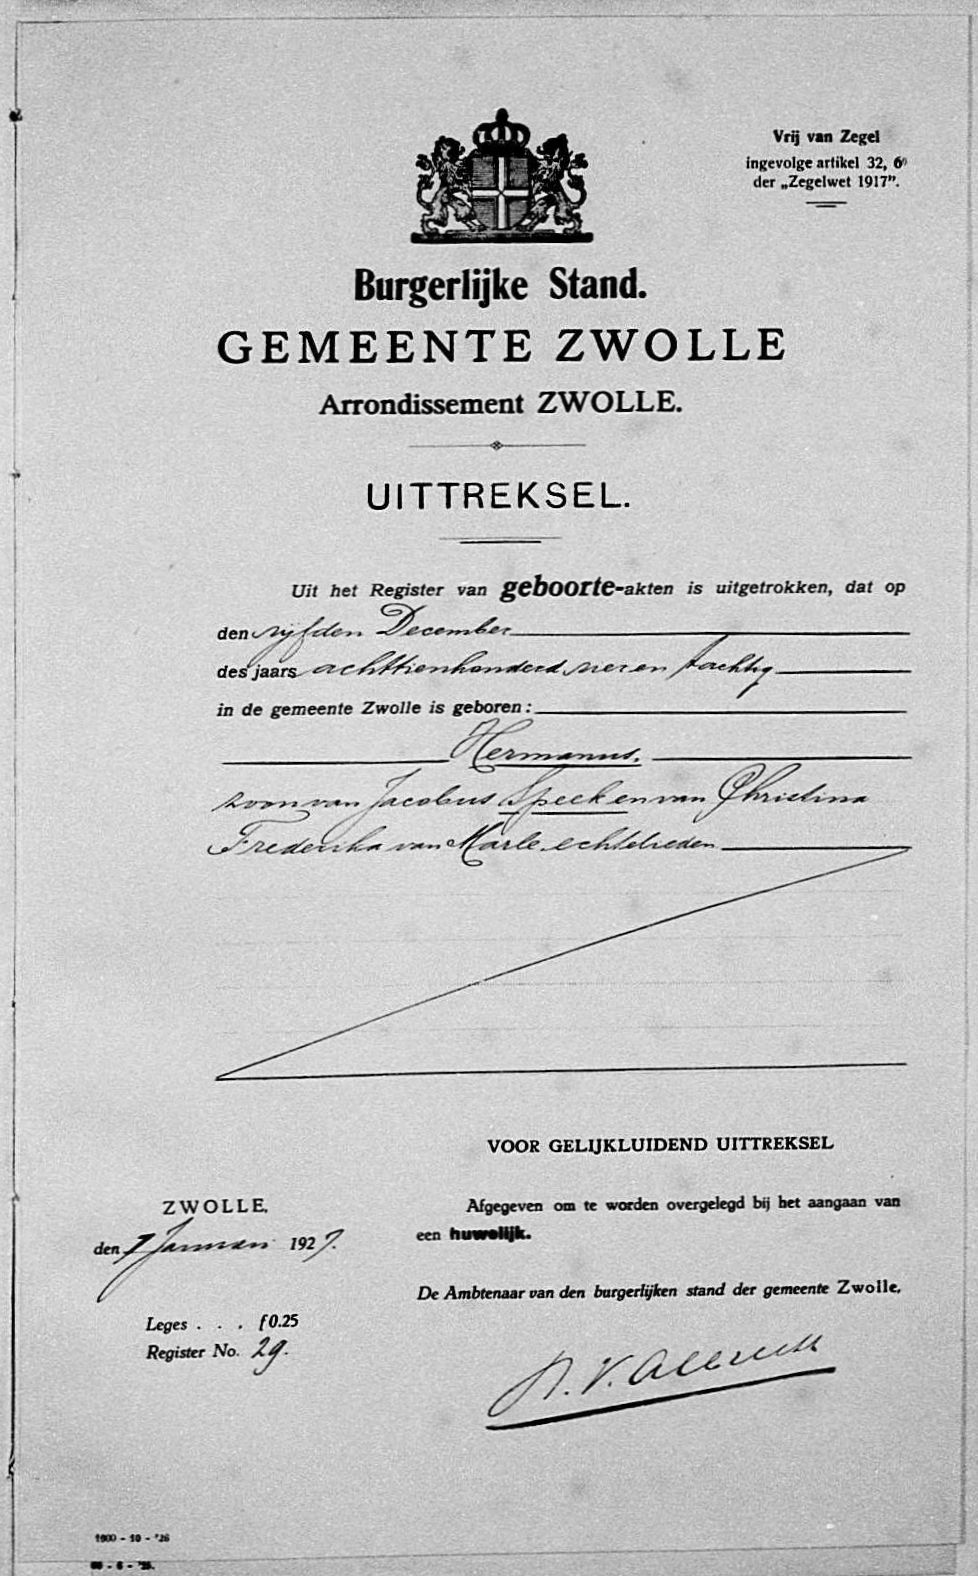 Vrij van Zegel
ingevolge artikel 32, 6°
der „Zegelwet 1917”.
Burgerlijke Stand.
GEMEENTE ZWOLLE
Arrondissement ZWOLLE.
UITTREKSEL.
Uit het Register van geboorte-akten is uitgetrokken, dat op
den vijfden December
des jaars achttienhonderd vier en tachtig
in de gemeente Zwolle is geboren:
Hermanus.
zoon van Jacobus Speek en van Christina
Frederika van Marle echtelieden
VOOR GELIJKLUIDEND UITTREKSEL
ZWOLLE,
Afgegeven om te worden overgelegd bij het aangaan van
een huwelijk.
den 7 Januari 1927.
De Ambtenaar van den burgerlijken stand der gemeente Zwolle,
Leges . . . f 0.25
Register No. 29.
1000 - 10 - '26